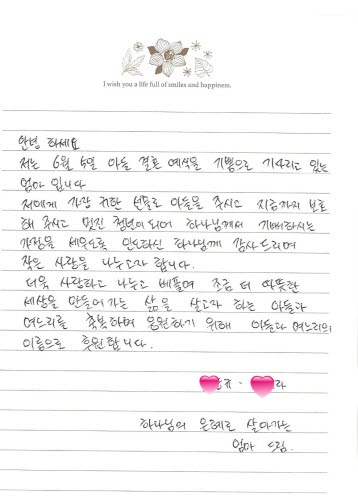 I wish you a life full of smiles and happiness.
안녕 하세요
저는 6월 4일 아들 결혼 예식을 기쁨으로 기다리고 있는
엄마 입니다
저에게 가장 귀한 선물로 아들을 주시고 지금까지 보호
해 주시고 멋진 청년이 되어 하나님께서 기뻐하시는
가정을 세우도록 인도하신 하나님께 감사드리며
작은 사랑을 나누고자 합니다.
더욱 사랑하고 나누고 베풀며 조금 더 따뜻한
세상을 만들어가는 삶을 살고자 하는 아들과
며느리를 축복하며 응원하기 위해 아들과 며느리의
이름으로 후원합니다.
하나님의 은혜로 살아가는
엄마 드림.